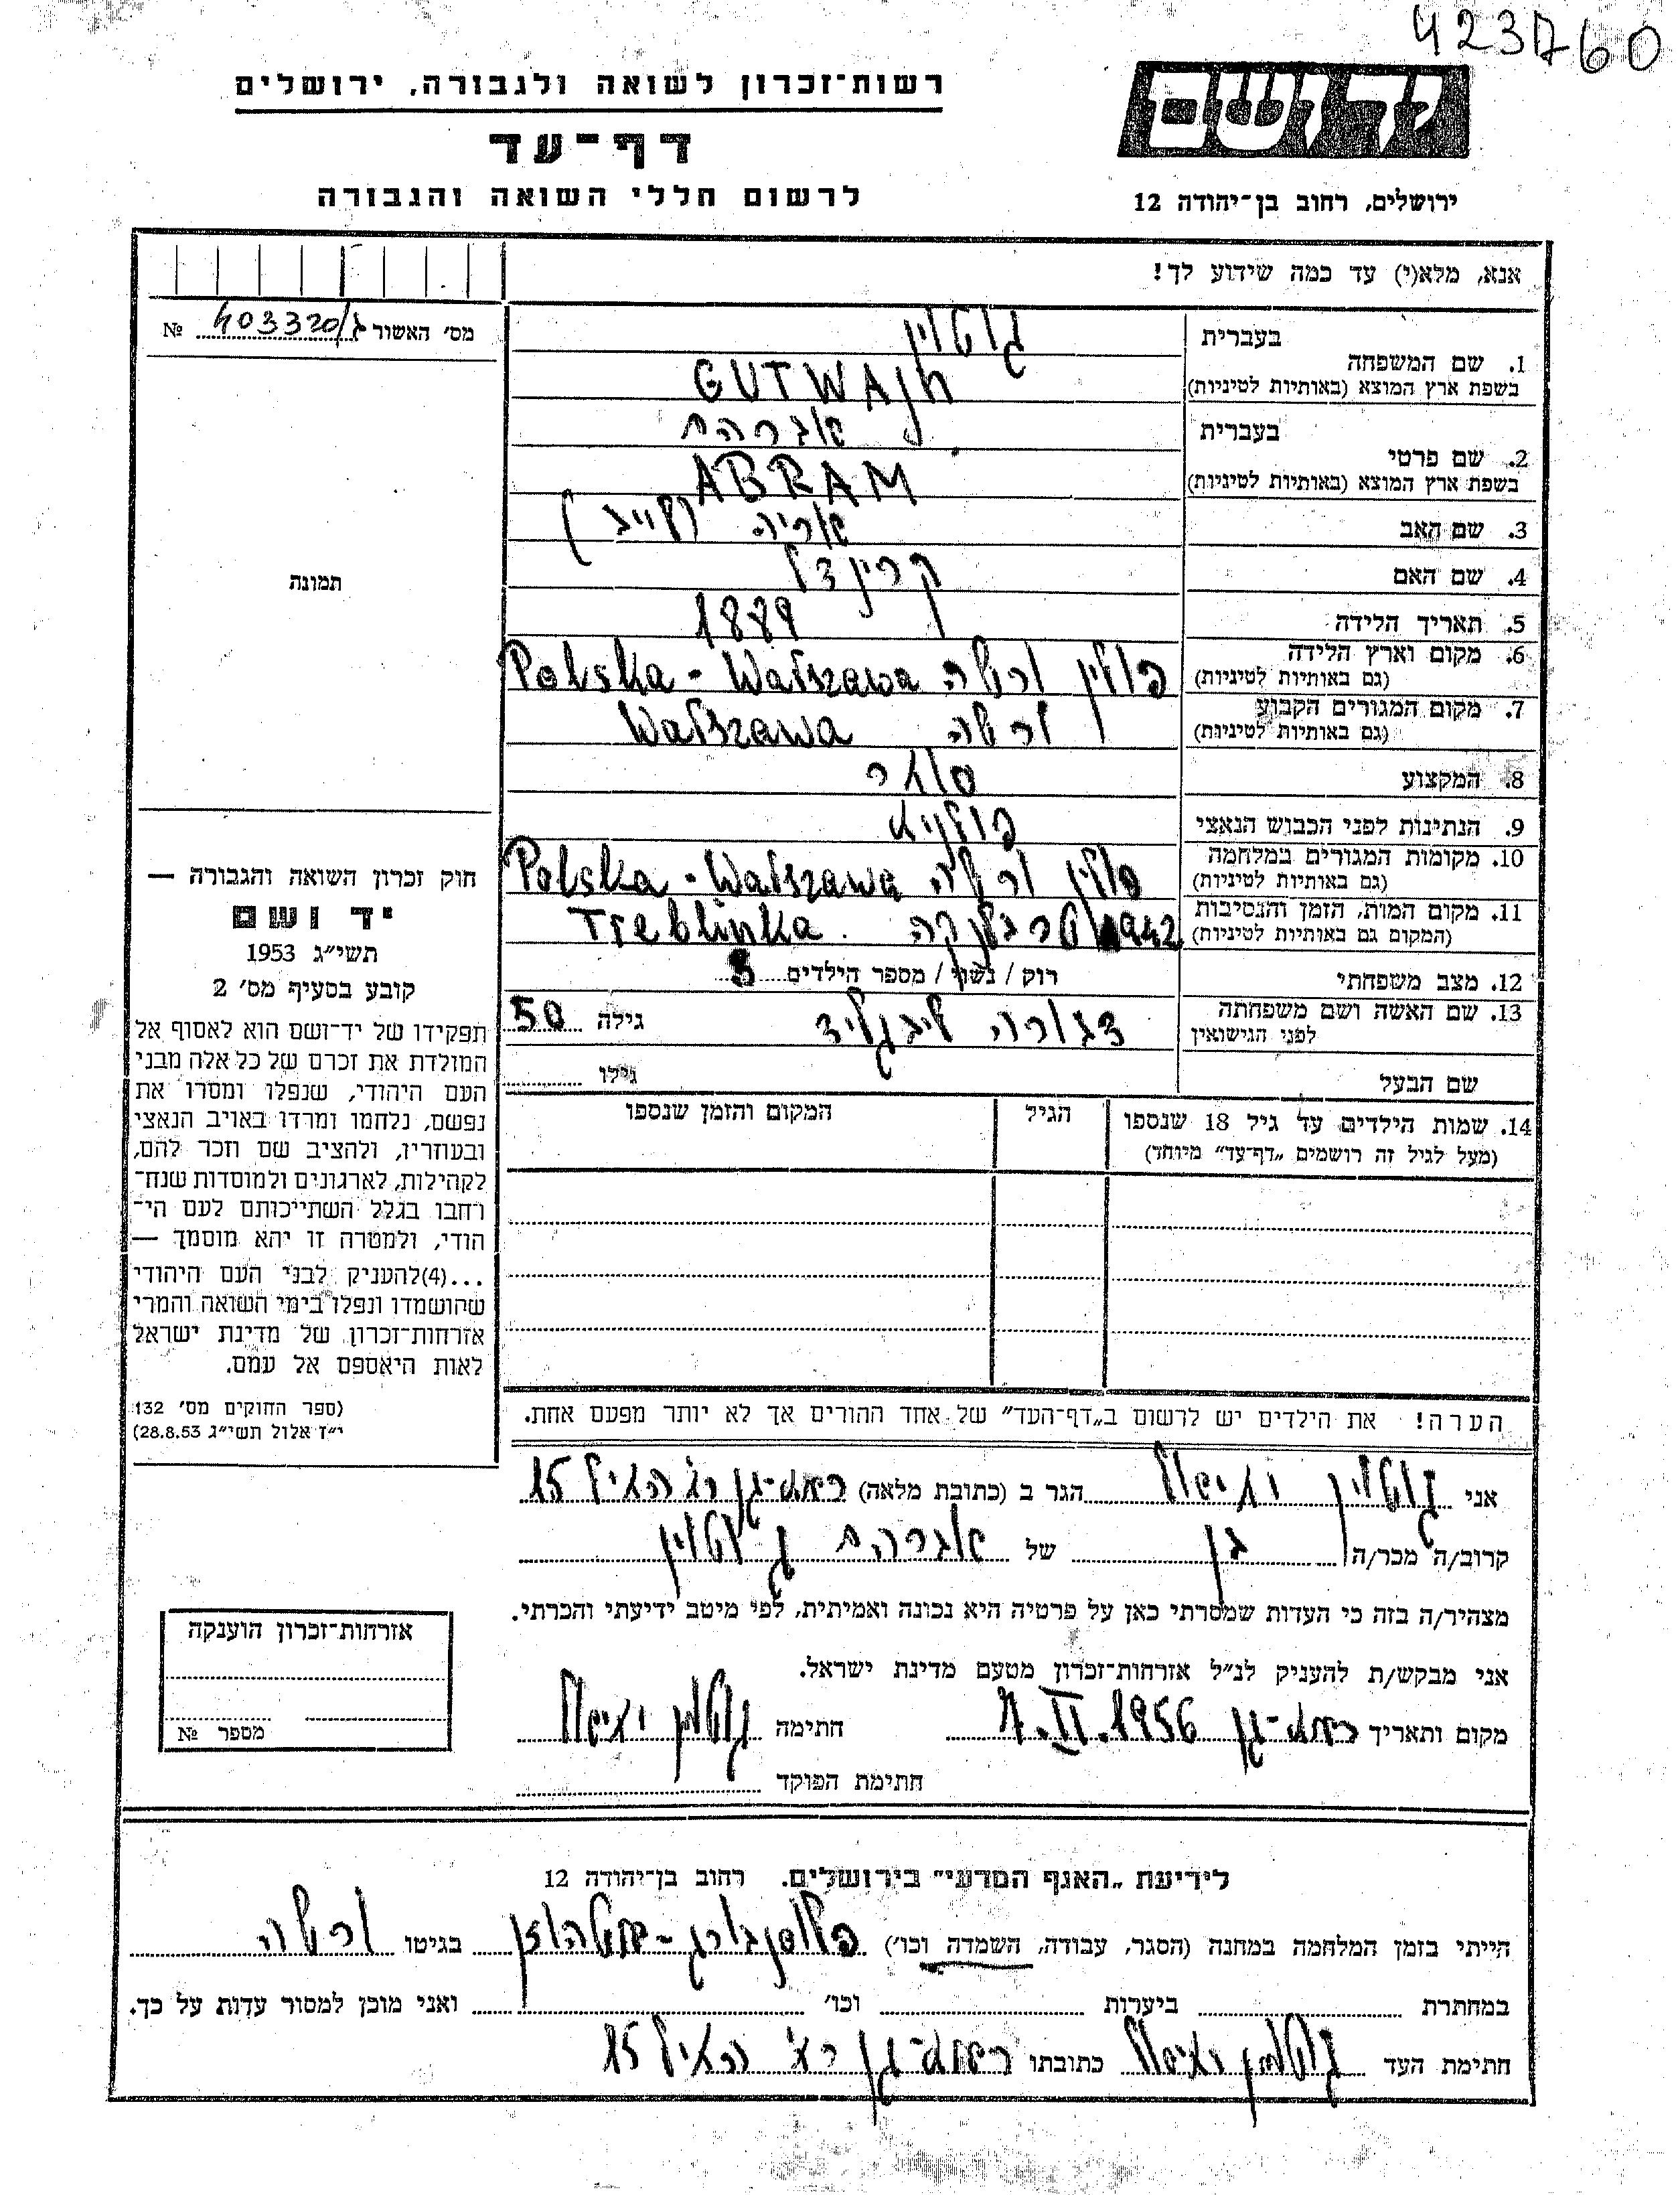 423760
רשות־זכרון לשואה ולגבורה, ירושלים
דף־עד
לרשום חללי השואה והגבורה
יד ושם
ירושלים, רחוב בן־יהודה 12
אנא, מלא(י) עד כמה שידוע לך!
מס׳ האשור ג/403320 №
תמונה
חוק זכרון השואה והגבורה —
יד ושם
תשי״ג 1953
קובע בסעיף מס׳ 2
תפקידו של יד־ושם הוא לאסוף אל
המולדת את זכרם של כל אלה מבני
העם היהודי, שנפלו ומסרו את
נפשם, נלחמו ומרדו באויב הנאצי
ובעוזריו, ולהציב שם וזכר להם,
לקהילות, לארגונים ולמוסדות שנח־
רחבו בגלל השתייכותם לעם הי־
הודי, ולמטרה זו יהא מוסמך —
...(4)להעניק לבני העם היהודי
שהושמדו ונפלו בימי השואה והמרי
אזרחות־זכרון של מדינת ישראל
לאות היאספם אל עמם.
(ספר החוקים מס׳ 132
י״ז אלול תשי״ג 28.8.53)
בעברית גוטוין
1. שם המשפחה
בשפת ארץ המוצא (באותיות לטיניות) GUTWAJN
בעברית אברהם
2. שם פרטי
בשפת ארץ המוצא (באותיות לטיניות) ABRAM
3. שם האב אריה (לייב)
4. שם האם קרינדל
5. תאריך הלידה 1889
6. מקום וארץ הלידה פולין ורשה Polska - Warszawa
(גם באותיות לטיניות)
7. מקום המגורים הקבוע ורשה Warszawa
(גם באותיות לטיניות)
8. המקצוע סוחר
9. הנתינות לפני הכבוש הנאצי פולניה
10. מקומות המגורים במלחמה פולין ורשה Polska - Warszawa
(גם באותיות לטיניות)
11. מקום המות, הזמן והנסיבות 1942 טרבלינקה Treblinka
(המקום גם באותיות לטיניות)
12. מצב משפחתי רוק / נשוי / מספר הילדים
13. שם האשה ושם משפחתה דבורה ליבגליד גילה 50
לפני הנישואין
שם הבעל גילו
14. שמות הילדים עד גיל 18 שנספו הגיל המקום והזמן שנספו
(מעל לגיל זה רושמים „דף־עד״ מיוחד)
הערה! את הילדים יש לרשום ב„דף־העד״ של אחד ההורים אך לא יותר מפעם אחת.
אני גוטוין הגר ב (כתובת מלאה) רמת-גן רח׳ 15
קרוב/ה מכר/ה בן של אברהם גוטוין
מצהיר/ה בזה כי העדות שמסרתי כאן על פרטיה היא נכונה ואמיתית, לפי מיטב ידיעתי והכרתי.
אני מבקש/ת להעניק לנ״ל אזרחות־זכרון מטעם מדינת ישראל.
מקום ותאריך רמת-גן 7.II.1956 חתימה גוטוין
חתימת הפוקד
אזרחות־זכרון הוענקה
מספר №
לידיעת „האגף המדעי״ בירושלים. רחוב בן־יהודה 12
הייתי בזמן המלחמה במחנה (הסגר, עבודה, השמדה וכו׳) בגיטו ורשה
במחתרת ביערות וכו׳ ואני מוכן למסור עדות על כך.
חתימת העד גוטוין כתובתו רמת-גן רח׳ 15